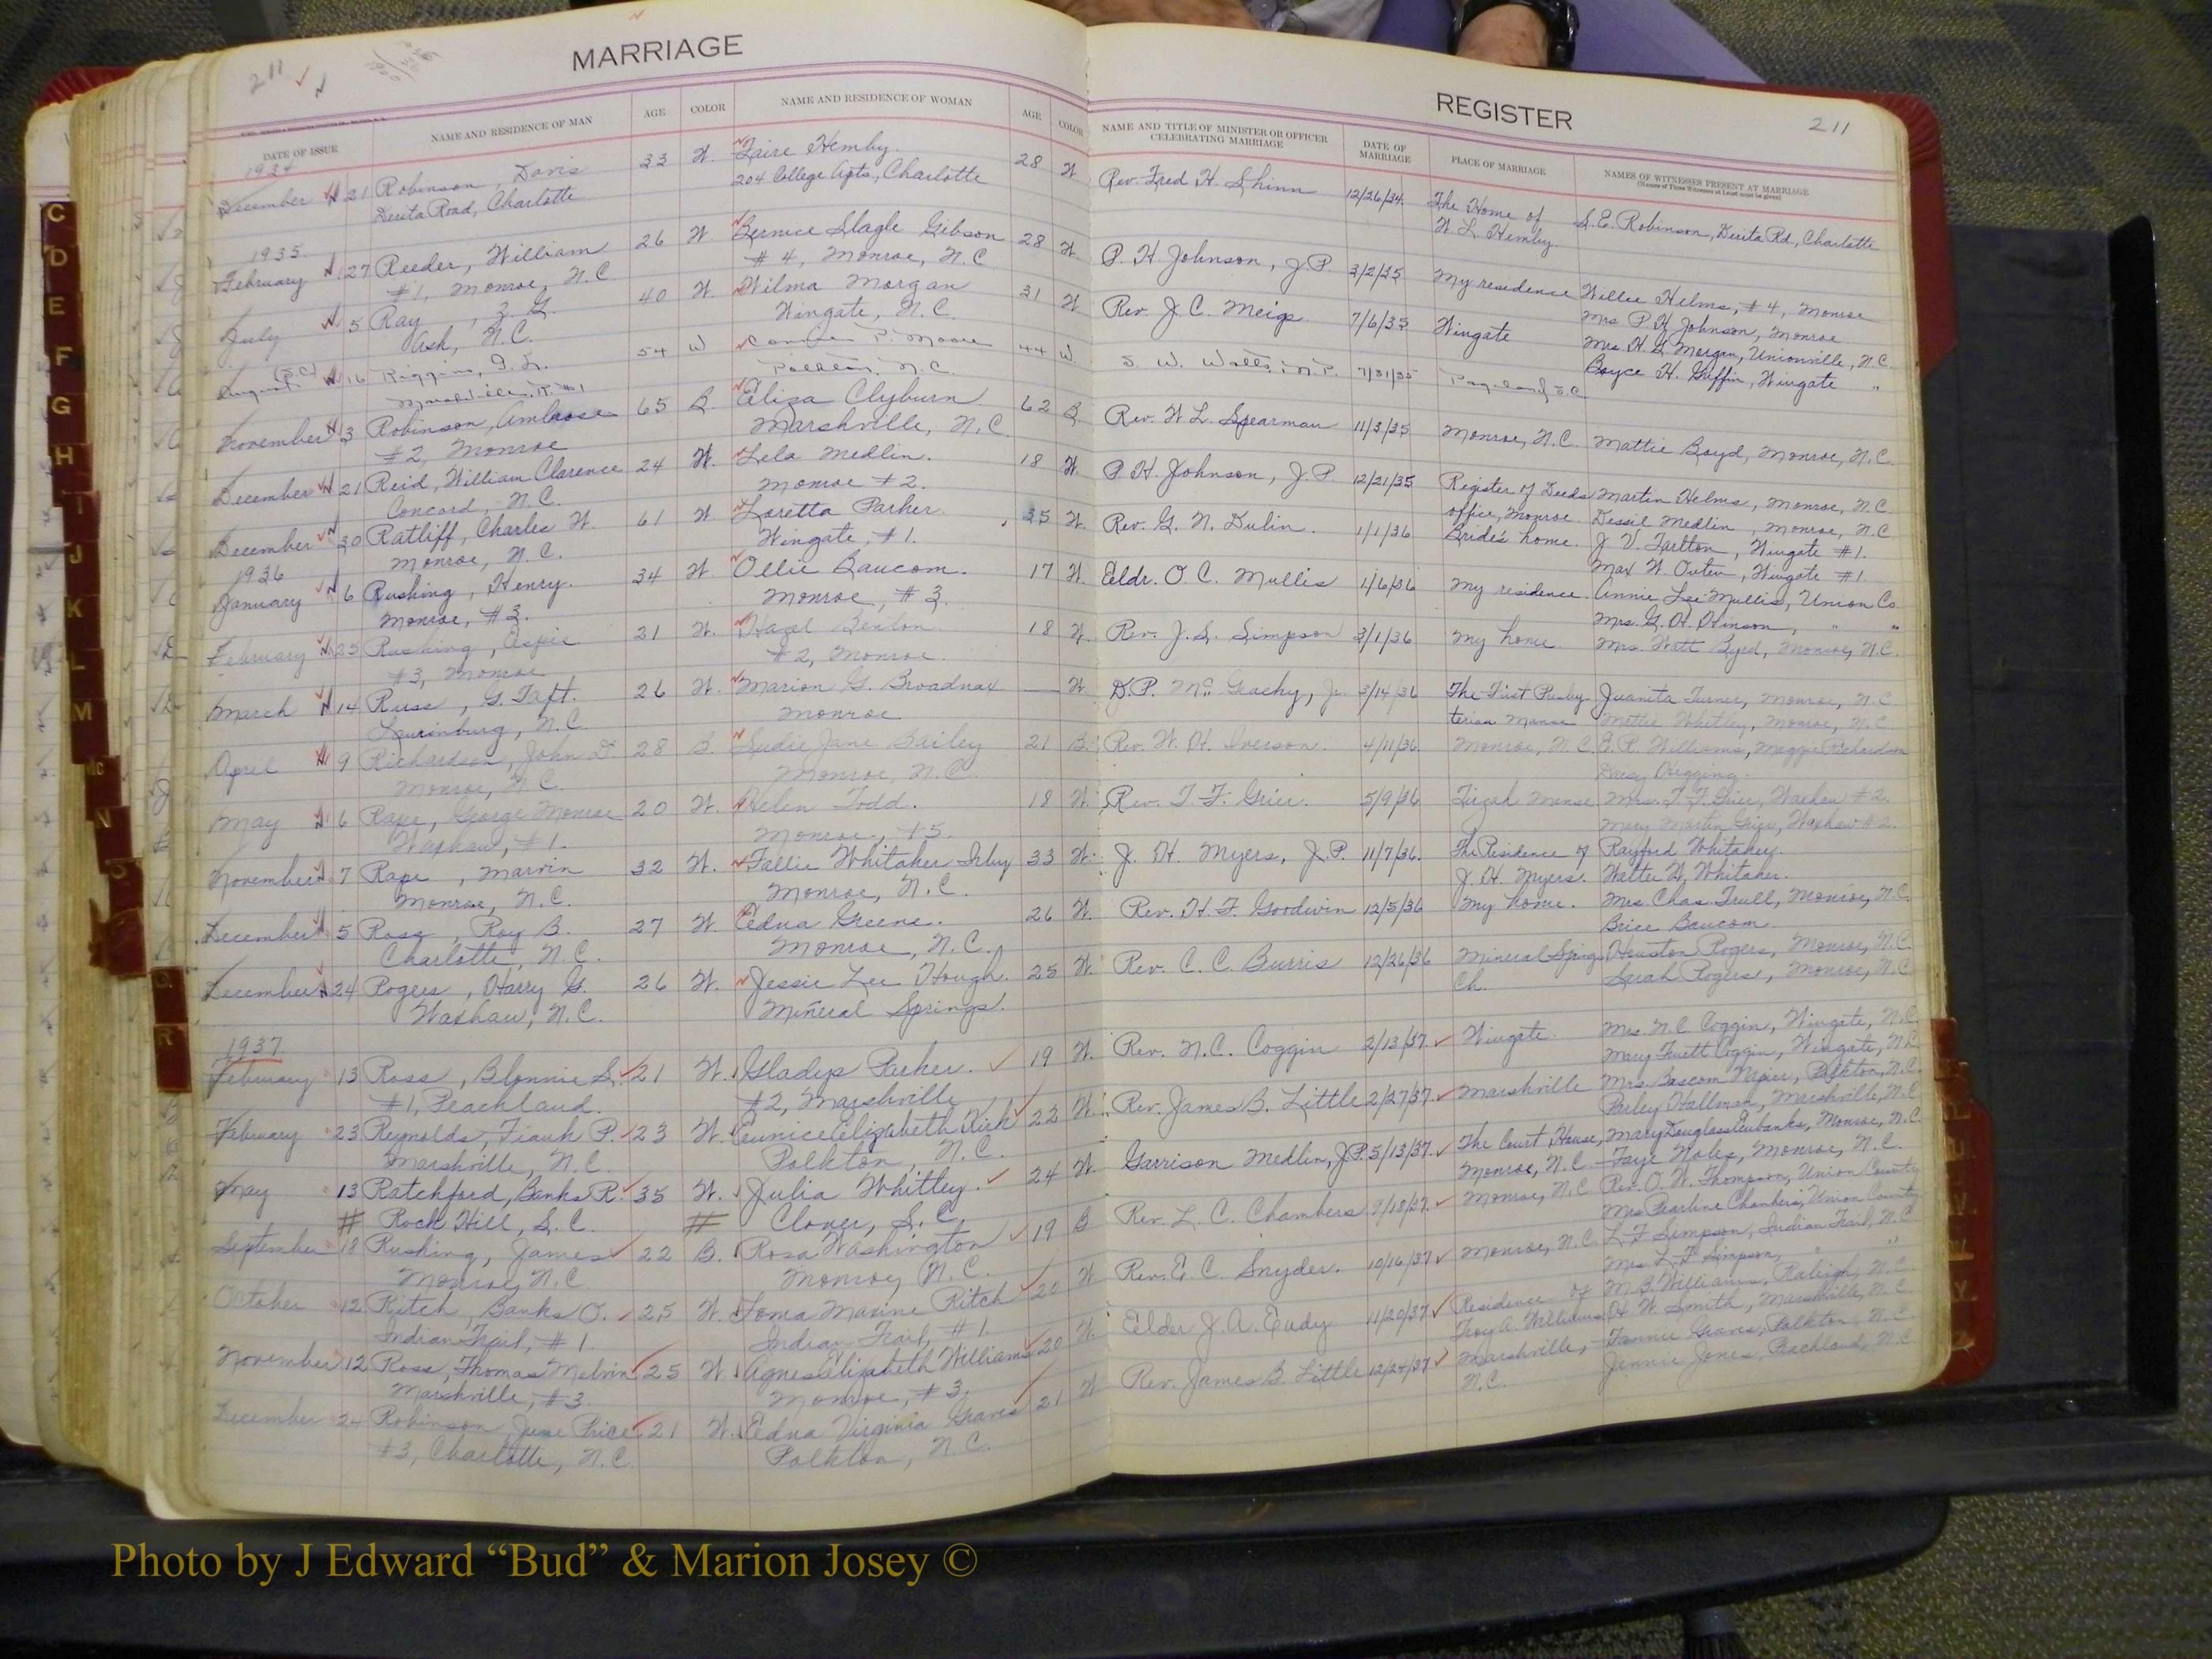 211
MARRIAGE
DATE OF ISSUE NAME AND RESIDENCE OF MAN AGE COLOR NAME AND RESIDENCE OF WOMAN AGE COLOR
1934
December 21 Robinson, Davis 33 W. Zaire Hemby. 28 W
Derita Road, Charlotte 204 College Apts, Charlotte
1935
February 27 Reeder, William 26 W Bernice Slagle Gibson 28 W.
#1, Monroe, N.C # 4, Monroe, N.C
July 5 Ray, Z. G. 40 W. Wilma Morgan 31 W
Ash, N.C. Wingate, N.C.
August (S.C.) 16 Riggins, 54 W P. Moore 44 W.
Marshville, R. #1 Polkton, N.C.
November 3 Robinson, Ambrose 65 B. Eliza Clyburn 62 B
#2, Monroe Marshville, N.C.
December 21 Reid, William Clarence 24 W. Lela Medlin. 18 W.
Concord, N.C. Monroe #2.
December 30 Ratliff, Charles W. 61 W Loretta Parker 35 W.
Monroe, N.C. Wingate, #1.
1936
January 6 Rushing, Henry. 34 W. Ollie Baucom. 17 W.
Monroe, #3. Monroe, #3.
February 25 Rushing, 21 W. Hazel Benton. 18 W.
#3, Monroe #2, Monroe.
March 14 Russ, G. Taft. 26 W. Marion G. Broadnax — W
Laurinburg, N.C Monroe
April 9 Richardson, John D. 28 B. Sudie Jane Bailey 21 B.
Monroe, N.C. Monroe, N.C.
May 6 Rape, George Monroe 20 W. Helen Todd. 18 W.
Waxhaw, #1. Monroe, #5.
November 7 Rape, Marvin 32 W. Fallie Whitaker Irby 33 W.
Monroe, N.C. Monroe, N.C.
December 5 Ross, Roy B. 27 W. Edna Greene. 26 W.
Charlotte, N.C. Monroe, N.C.
December 24 Rogers, Harry G. 26 W. Jessie Lee Hough. 25 W.
Waxhaw, N.C. Mineral Springs.
1937
February 13 Ross, Blonnie S. 21 W. Gladys Parker. 19 W.
#1, Peachland. #2, Marshville
February 23 Reynolds, Frank P. 23 W. Eunice Elizabeth Kirk 22 W.
Marshville, N.C. Polkton, N.C.
May 13 Ratchford, Banks R. 35 W. Julia Whitley. 24 W.
# Rock Hill, S.C. # Clover, S.C.
September 18 Rushing, James 22 B. Rosa Washington 19 B
Monroe, N.C Monroe, N.C.
October 12 Ritch, Banks O. 25 W. Toma Maxine Ritch 20 W
Indian Trail, #1. Indian Trail, #1.
November 12 Ross, Thomas Melvin 25 W. Agnes Elizabeth Williams 20 W.
Marshville, #3. Monroe, #3.
December 24 Robinson, June Price 21 W. Edna Virginia Graves 21 W
#3, Charlotte, N.C. Polkton, N.C.
REGISTER
211
NAME AND TITLE OF MINISTER OR OFFICER CELEBRATING MARRIAGE DATE OF MARRIAGE PLACE OF MARRIAGE NAMES OF WITNESSES PRESENT AT MARRIAGE
(Names of Three Witnesses at Least must be given)
Rev. Fred H. Shinn 12/26/34. The Home of S.E. Robinson, Derita Rd, Charlotte
W.L. Hemby.
P. H. Johnson, J.P. 3/2/35 My residence Willie Helms, #4, Monroe
Mrs P.H. Johnson, Monroe
Rev. J. C. Meigs. 7/6/35 Wingate Mrs. H. G. Morgan, Unionville, N.C.
Boyce H. Griffin, Wingate "
S. W. Watts, N.P. 7/31/35 Pageland, S.C.
Rev. W. L. Spearman 11/3/35 Monroe, N.C. Mattie Boyd, Monroe, N.C.
P. H. Johnson, J.P. 12/21/35 Register of Deeds Martin Helms, Monroe, N.C.
office, Monroe. Dessie Medlin, Monroe, N.C
Rev. G. N. Dulin. 1/1/36 Bride's home. J. V. Tarlton, Wingate #1.
Max W. Outen, Wingate #1.
Eldr. O. C. Mullis 1/6/36 My residence. Annie Lee Mullis, Union Co.
Mrs. G. H. Hinson, " "
Rev. J. S. Simpson 3/1/36 My home. Mrs. Watt Byrd, Monroe, N.C.
D.P. McGeachy, Jr. 3/14/36 The First Presby- Juanita Turner, Monroe, N.C
terian Manse Mattie Whitley, Monroe, N.C.
Rev. W. H. Iverson. 4/11/36. Monroe, N.C. E. R. Williams, Maggie Richardson
Daisy
Rev. T. F. Grier. 5/9/36 Tirzah Manse Mrs. T. F. Grier, Waxhaw #2.
Mary Martin Grier, Waxhaw #2.
J. H. Myers, J.P. 11/7/36. The Residence of Rayford Whitaker.
J. H. Myers. Walter W. Whitaker.
Rev. H. F. Goodwin 12/5/36 My home. Mrs. Chas. Trull, Monroe, N.C.
Brice Baucom.
Rev. C. C. Burris 12/26/36 Mineral Springs Houston Rogers, Monroe, N.C.
Ch. Sarah Rogers, Monroe, N.C
Rev. N.C. Coggin 2/13/37. Wingate. Mrs. N.C. Coggin, Wingate, N.C.
Mary Truett Coggin, Wingate, N.C.
Rev. James B. Little 2/27/37. Marshville Mrs. Bascom Napier, Polkton, N.C.
Parley Hallman, Marshville, N.C
Garrison Medlin, J.P. 5/13/37. The Court House, Mary Douglas Eubanks, Monroe, N.C.
Monroe, N.C. Faye Noles, Monroe, N.C.
Rev. L. C. Chambers 9/18/37. Monroe, N.C. Rev. O. W. Thompson, Union County
Mrs Pearline Chambers, Union County
Rev. E. C. Snyder. 10/16/37 Monroe, N.C. L. F. Simpson, Indian Trail, N.C
Mrs. L. F. Simpson, " "
Elder J. A. Eudy 11/20/37 Residence of M. B. Williams, Raleigh, N.C.
Troy A. Williams H. W. Smith, Marshville, N.C.
Rev. James B. Little 12/24/37 Marshville, Fannie Graves, Polkton, N.C
N.C. Jennie Jones, Peachland, N.C
C
D
E
F
G
H
I
J
K
L
M
Mc
N
O
R
Photo by J Edward “Bud” & Marion Josey ©